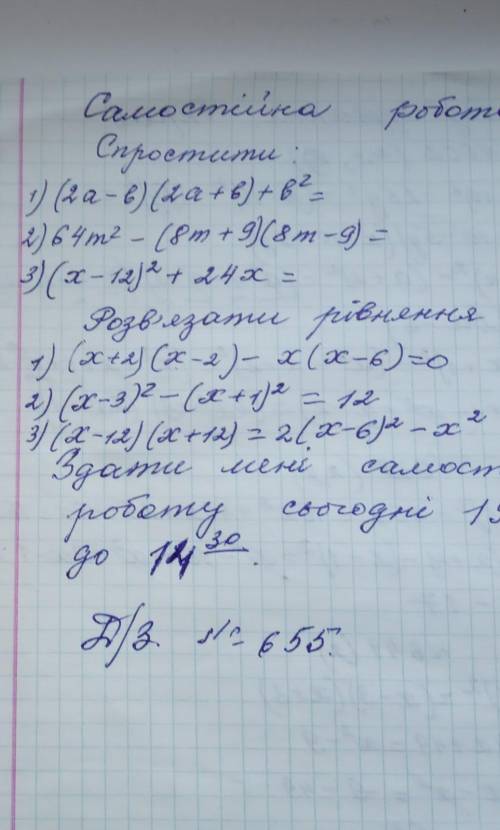 Самостійна робота
Спростити:
1) (2а-в)(2а+в)+в²=
2) 64m² - (8m+9)(8m-9)=
3) (x-12)² + 24x =
Розв'язати рівняння
1) (x+2)(x-2) - x(x-6)=0
2) (x-3)² - (x+1)² = 12
3) (x-12)(x+12) = 2(x-6)² - x²
Здати мені самост
роботу сьогодні
до 14 30.
Д/З. № 655.